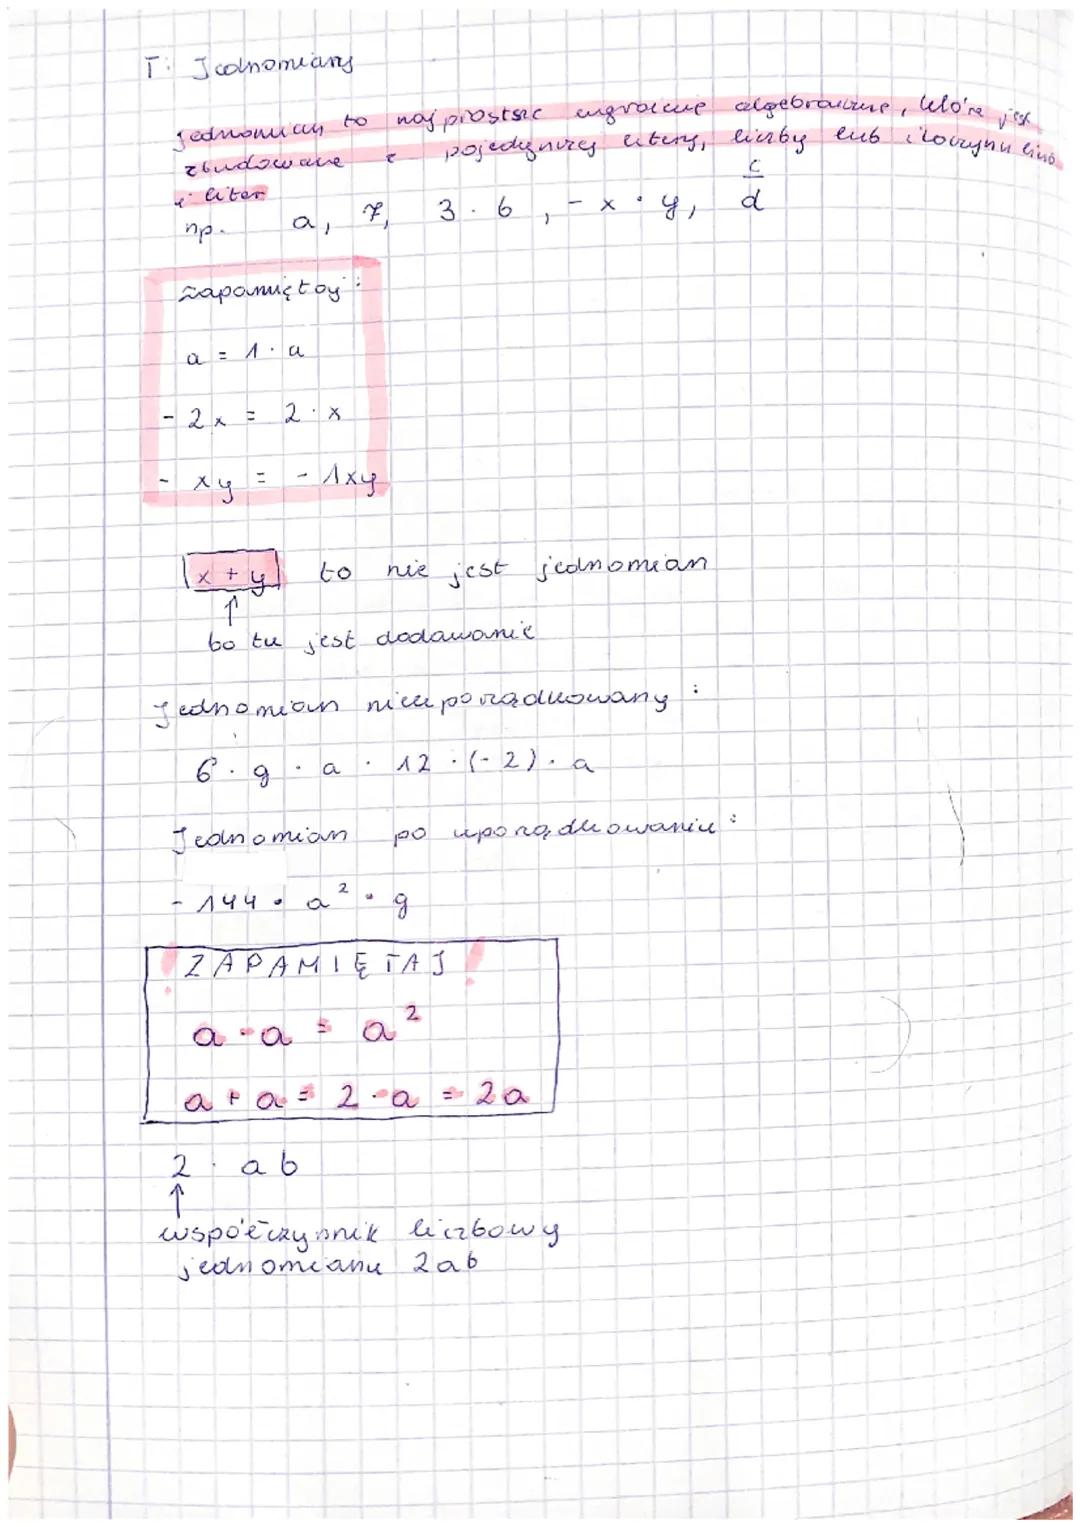 T: Jednomiany
jednomian to najprostsze wyrażenie algebraiczne, które jest
zbudowane z pojedynczej litery, liczby lub iloczynu liczb
i liter
np. a, 7, 3 · b, - x · y, c/d
zapamiętaj:
a = 1 · a
- 2x = 2 · x
- xy = - 1xy
x + y to nie jest jednomian
↑
bo tu jest dodawanie
Jednomian nieuporządkowany:
6 · g · a · 12 · (-2) · a
Jednomian po uporządkowaniu:
- 144 · a² · g
! ZAPAMIĘTAJ !
a · a = a²
a + a = 2 · a = 2a
2 · ab
↑
współczynnik liczbowy
jednomianu 2ab